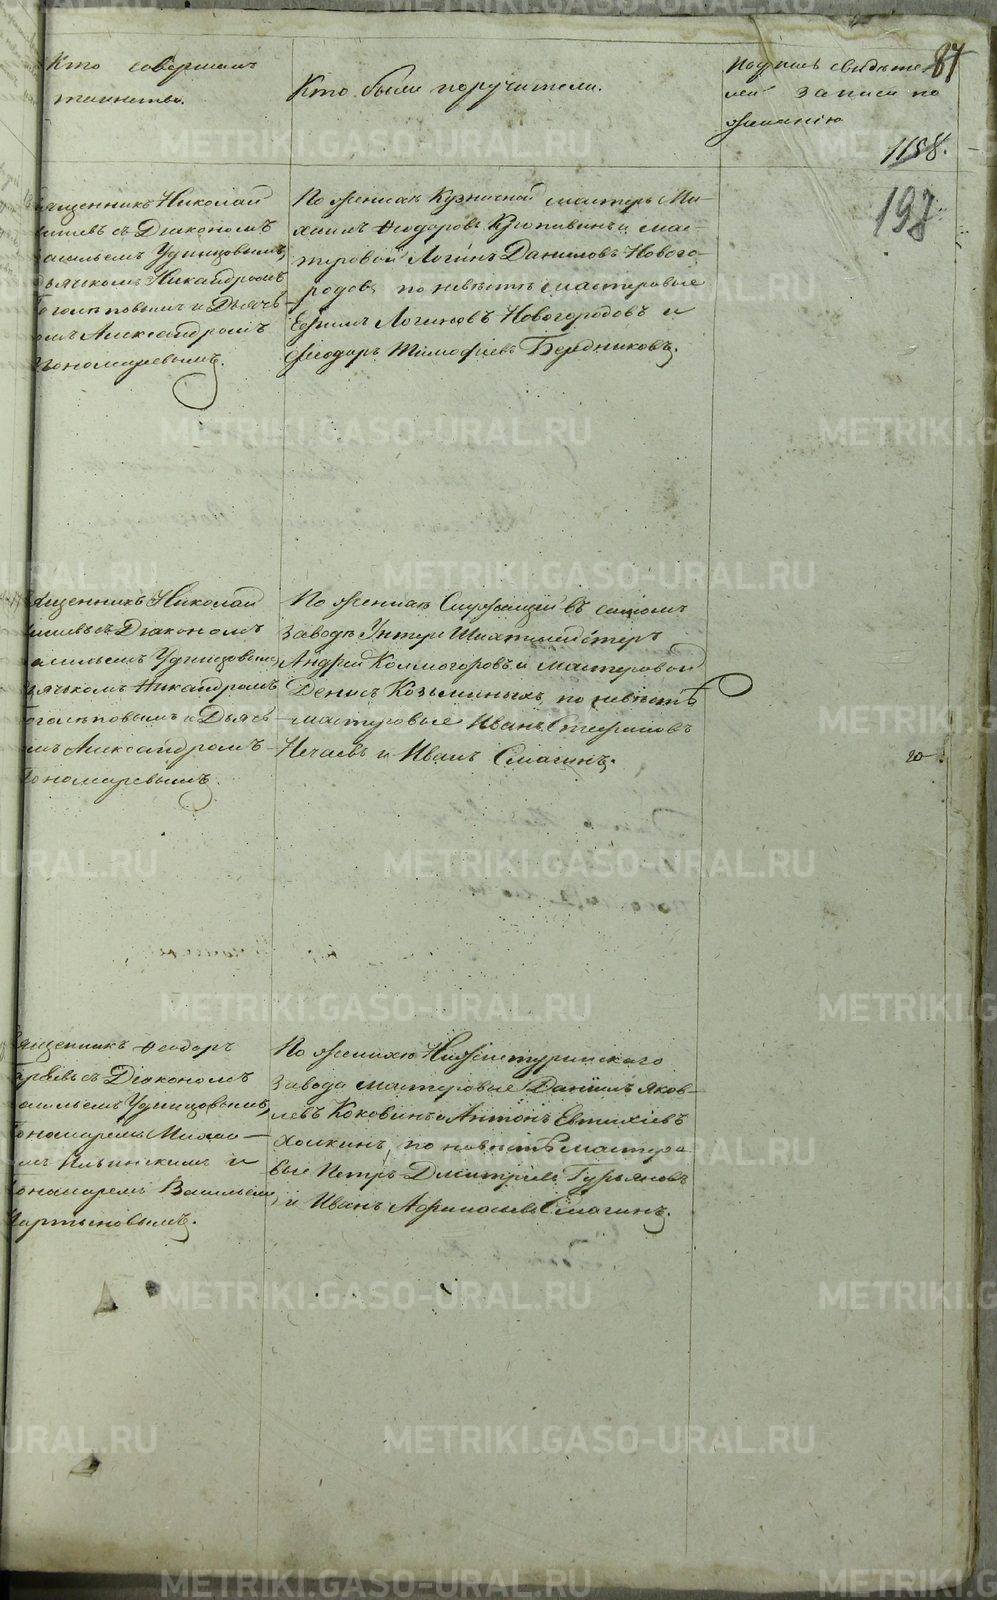 87
Кто совершалъ
таинство.
Кто были поручители.
Подпись свидѣте
лей записи по
желанію
1158.
198
ященникъ Николай
съ Діакономъ
асильемъ Удинцовымъ,
ьячкомъ Никандромъ
и Дьячк
омъ Александромъ
Пономаревымъ.
По женихѣ Кузничной мастеръ Ми-
хаилъ Ѳеодоровъ Кропивинъ и мас-
теровой Логинъ Даниловъ Нового-
родовъ, по невѣстѣ мастеровые
Ефимъ Логиновъ Новогородовъ и
Ѳеодоръ Тимофѣевъ Бердниковъ.
ященникъ Николай
съ Діакономъ
асильемъ Удинцовымъ,
ьячкомъ Никандромъ
и Дьячк
омъ Александромъ
Пономаревымъ.
По женихѣ Служащій въ семъ
заводѣ Унтеръ Шихтмейстеръ
Андрей Колмогоровъ и мастеровой
Денисъ Козьминыхъ, по невѣстѣ
мастеровые Иванъ Стефановъ
Нечаевъ и Иванъ Смагинъ.
20
ященникъ Ѳеодоръ
съ Діакономъ
асильемъ Удинцовымъ,
Пономаремъ Михаи-
ломъ Ильинскимъ и
Пономаремъ Васильемъ
Мартыновымъ.
По женихѣ Нижнетуринскаго
завода мастеровые Даніилъ Яков-
левъ Коковинъ и Антонъ Евтихіевъ
Халкинъ, по невѣстѣ мастеро
вые Петръ Дмитріевъ Гурьяновъ
и Иванъ Афанасьевъ Смагинъ.
METRIKI.GASO-URAL.RU